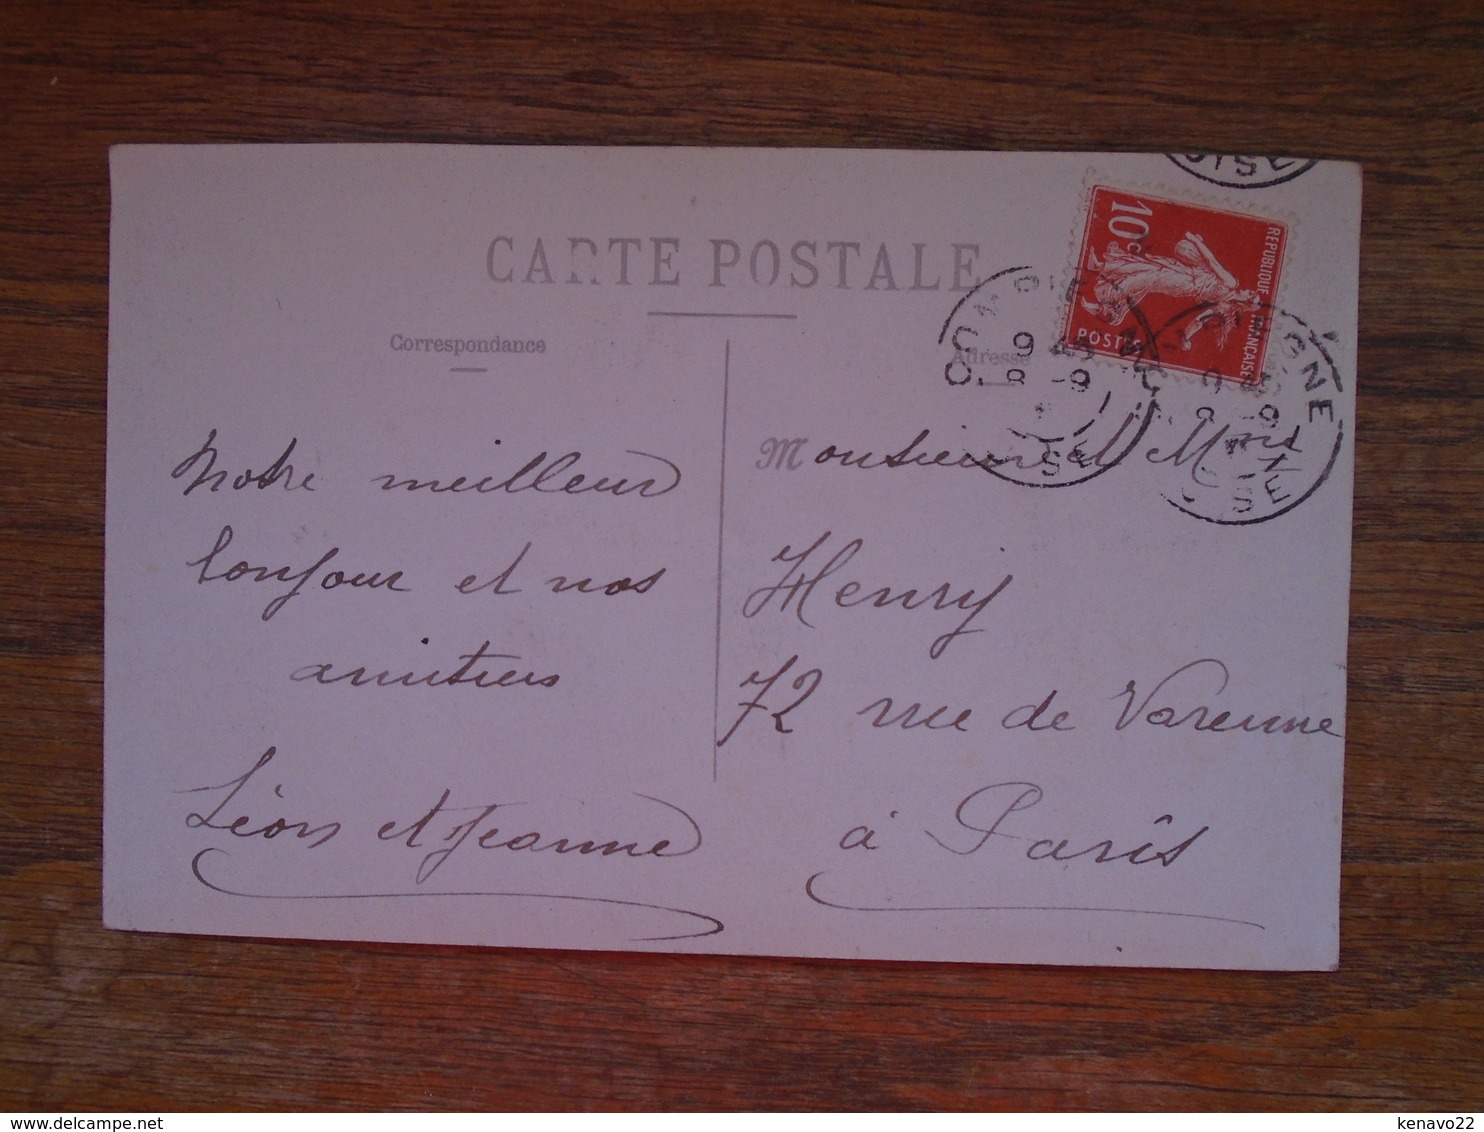 CARTE POSTALE
Correspondance
Adresse
10c
REPUBLIQUE FRANÇAISE
POSTES
COMPIEGNE
9 45
8 -9
OISE
Notre meilleur
bonjour et nos
amitiers
Léon et Jeanne
Monsieur et Mme
Henry
72 rue de Varenne
à Paris
kenavo22